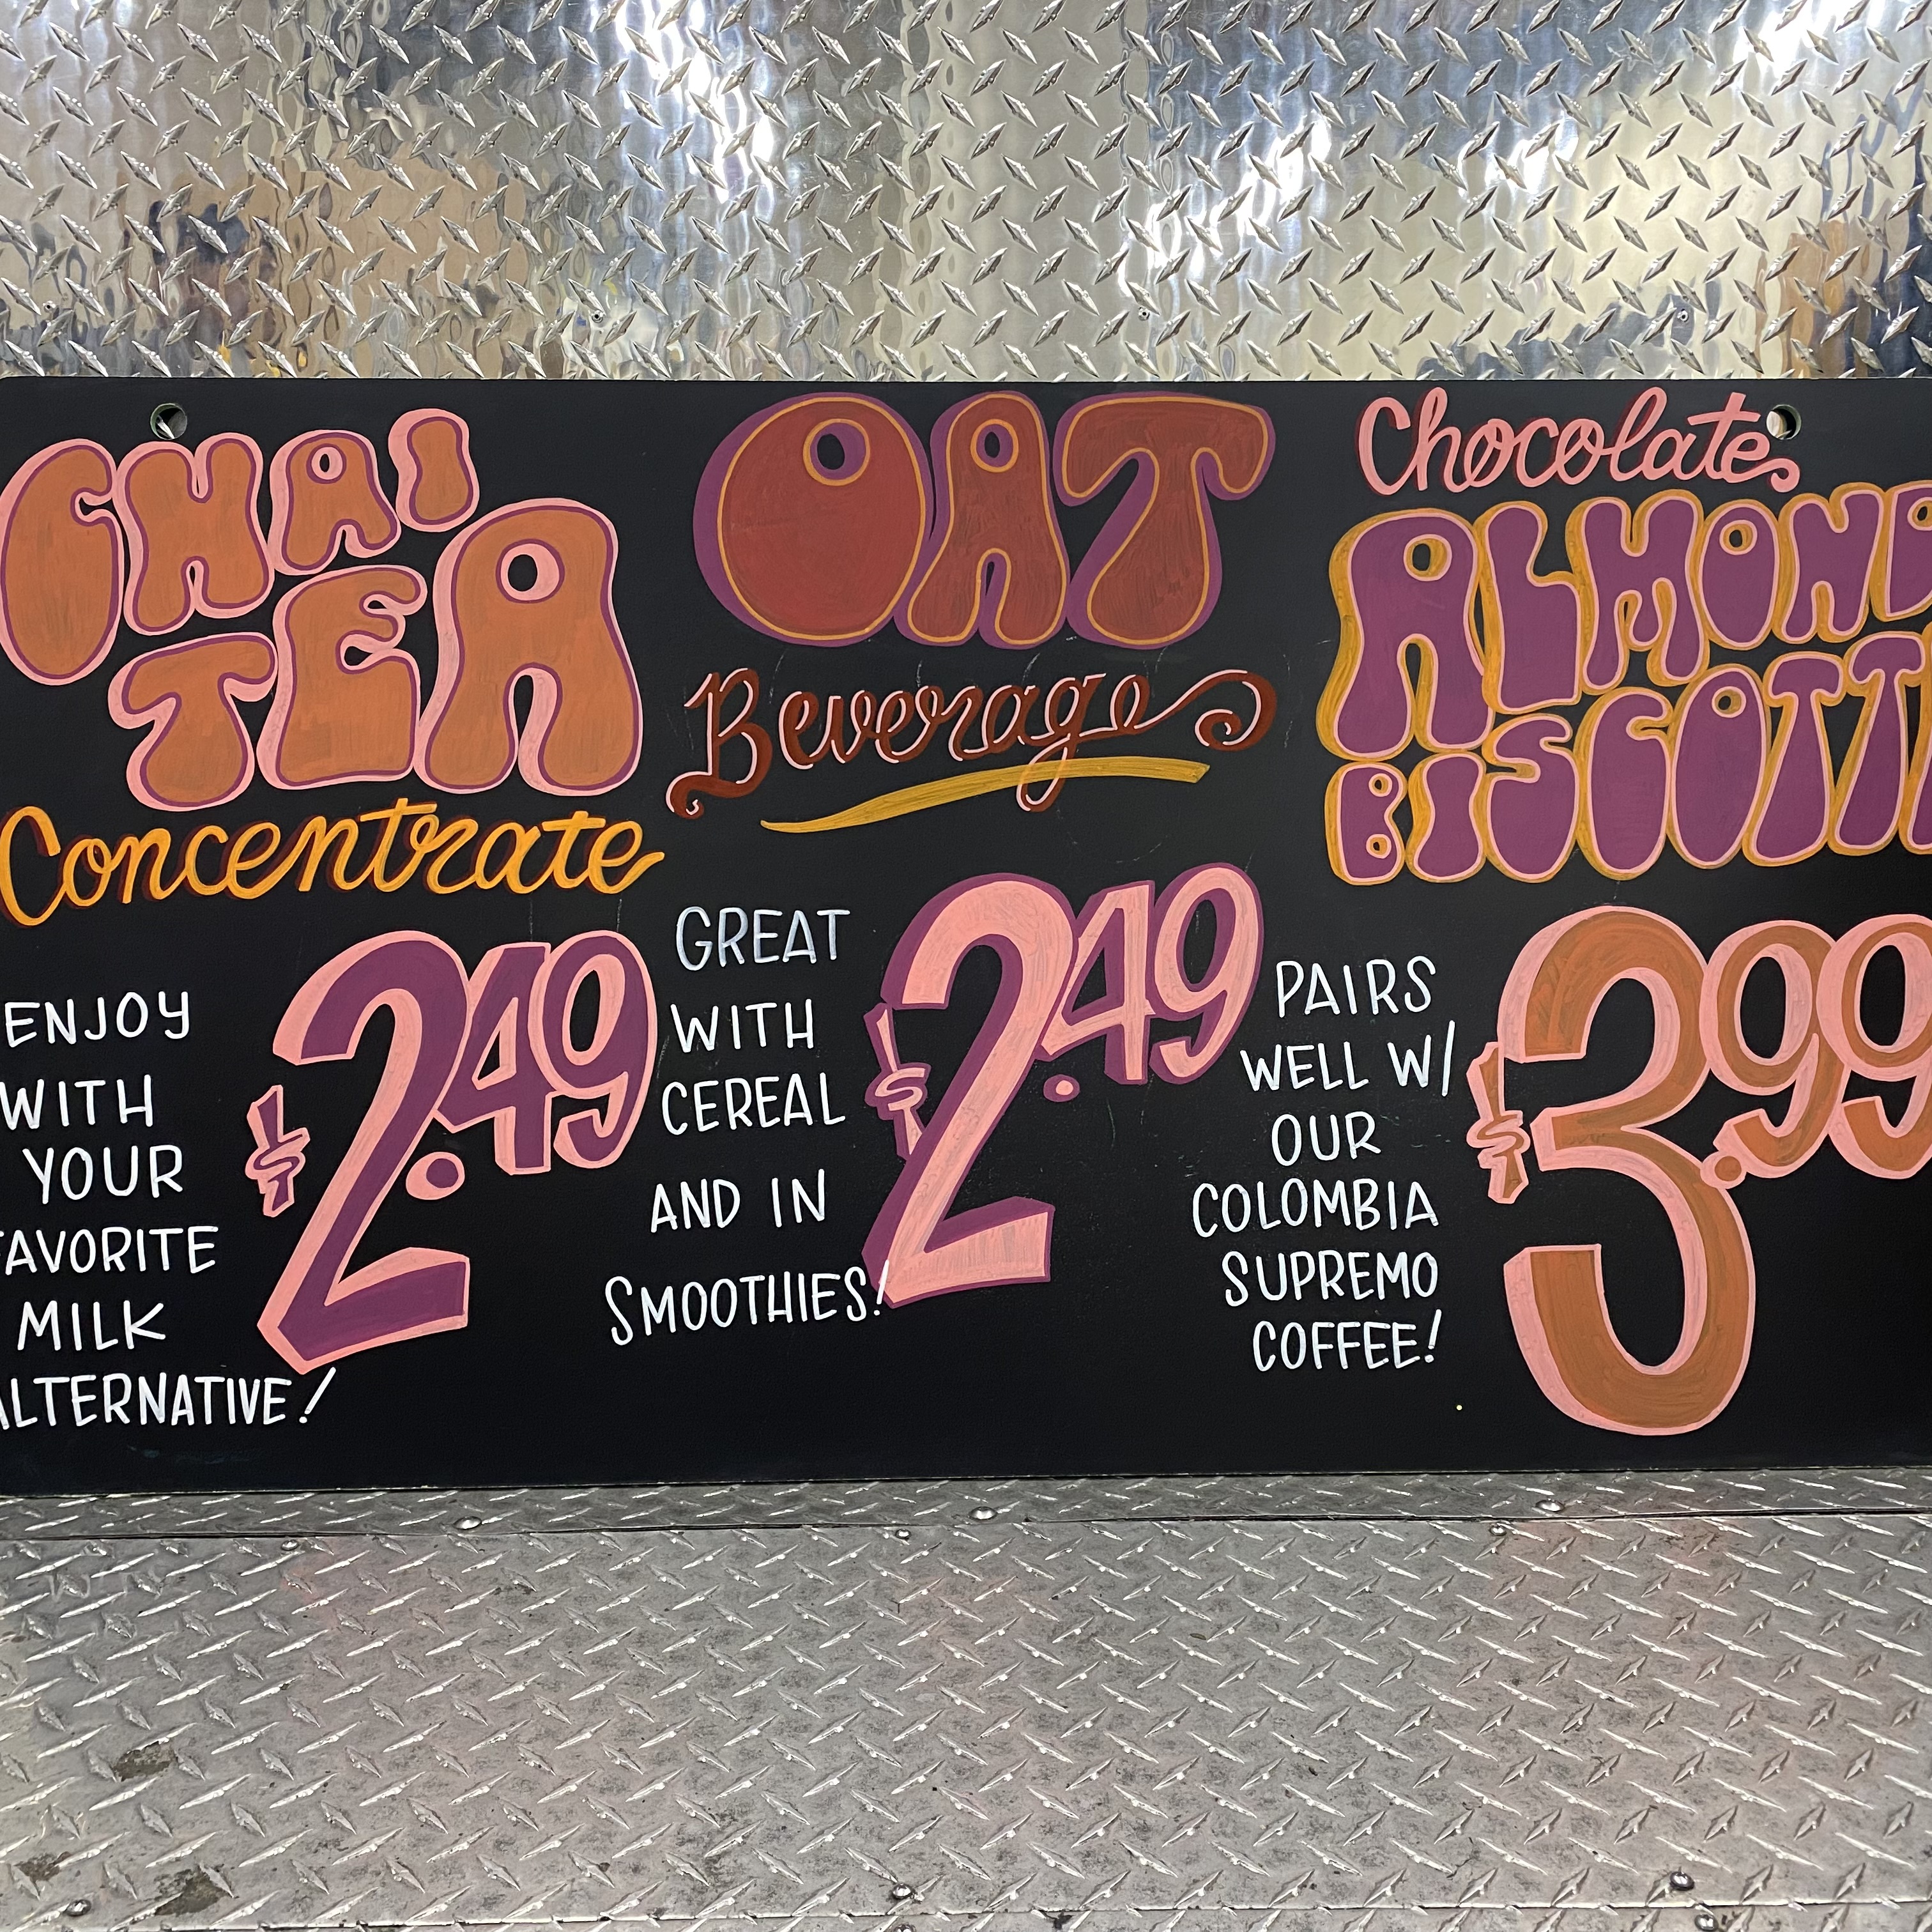 CHAI
TEA
Concentrate
ENJOY
WITH
YOUR
FAVORITE
MILK
ALTERNATIVE!
$2.49
OAT
Beverage
GREAT
WITH
CEREAL
AND IN
SMOOTHIES!
$2.49
Chocolate
ALMOND
BISCOTTI
PAIRS
WELL W/
OUR
COLOMBIA
SUPREMO
COFFEE!
$3.99